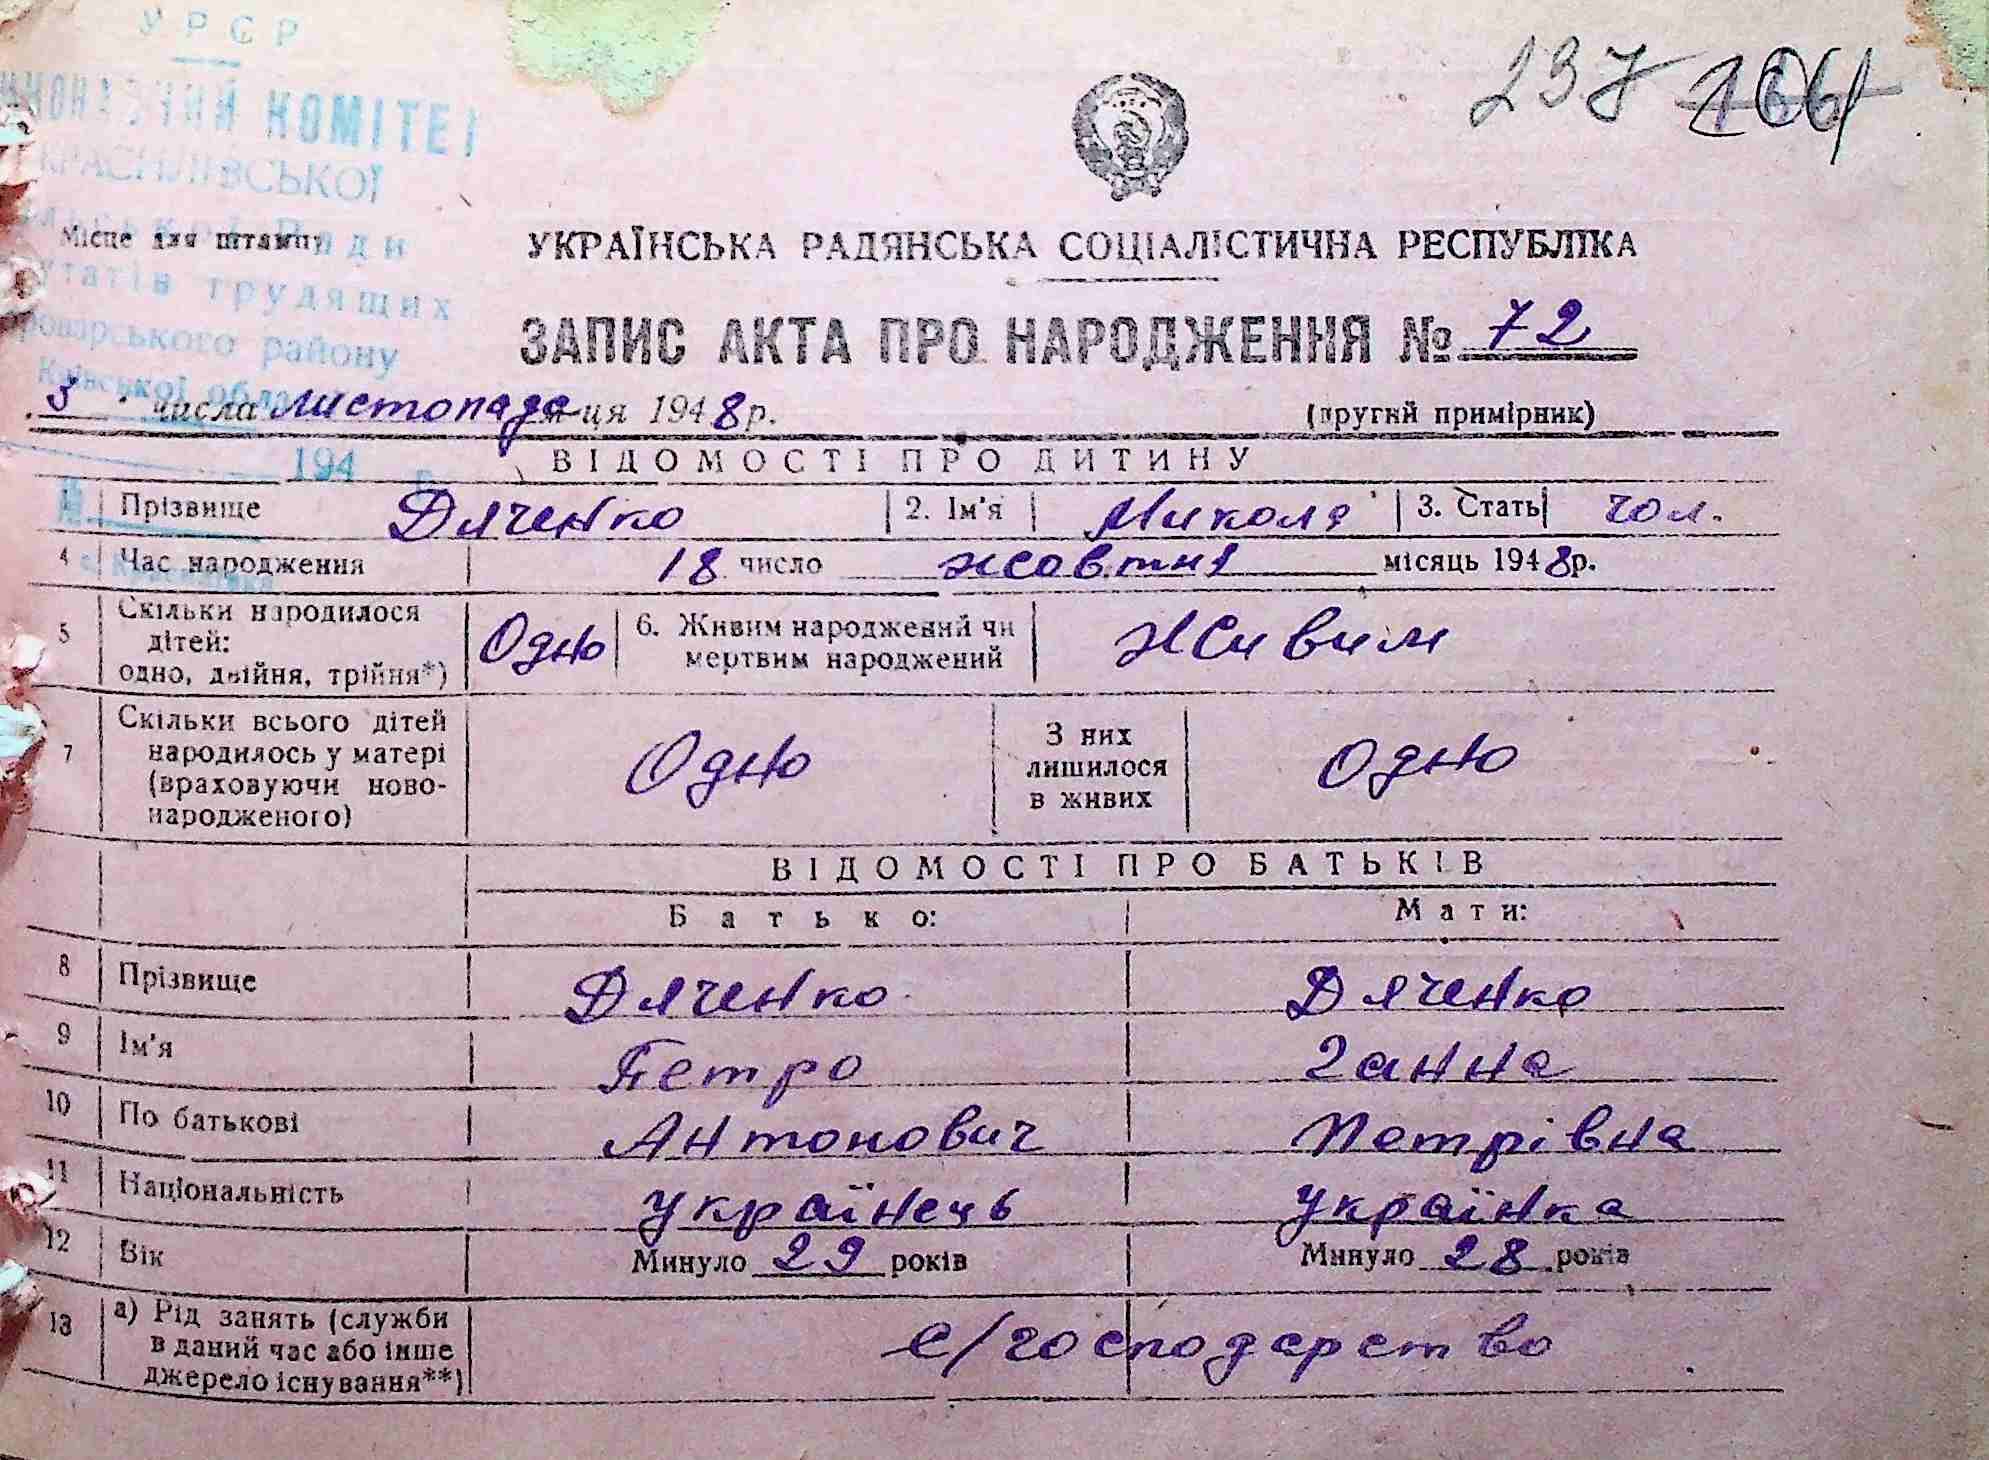 УРСР
КОМІТЕТ
КРАСИЛІВСЬКОЇ
Ради
трудящих
району
Київської
194
237 164
Місце для штампу
УКРАЇНСЬКА РАДЯНСЬКА СОЦІАЛІСТИЧНА РЕСПУБЛІКА
ЗАПИС АКТА ПРО НАРОДЖЕННЯ № 72
3 числа листопада м-ця 1948 р.
(другий примірник)
ВІДОМОСТІ ПРО ДИТИНУ
1 Прізвище Дяченко 2. Ім'я Микола 3. Стать чол.
4 Час народження 18 число жовтня місяць 1948 р.
5 Скільки народилося дітей: одно, двійня, трійня*) Одно 6. Живим народжений чи мертвим народжений живим
7 Скільки всього дітей народилось у матері (враховуючи ново-народженого) Одно З них лишилося в живих одно
ВІДОМОСТІ ПРО БАТЬКІВ
Батько: Мати:
8 Прізвище Дяченко Дяченко
9 Ім'я Петро Ганна
10 По батькові Антонович Петрівна
11 Національність українець українка
12 Вік Минуло 29 років Минуло 28 років
13 а) Рід занять (служби в даний час або інше джерело існування**) с/господарство